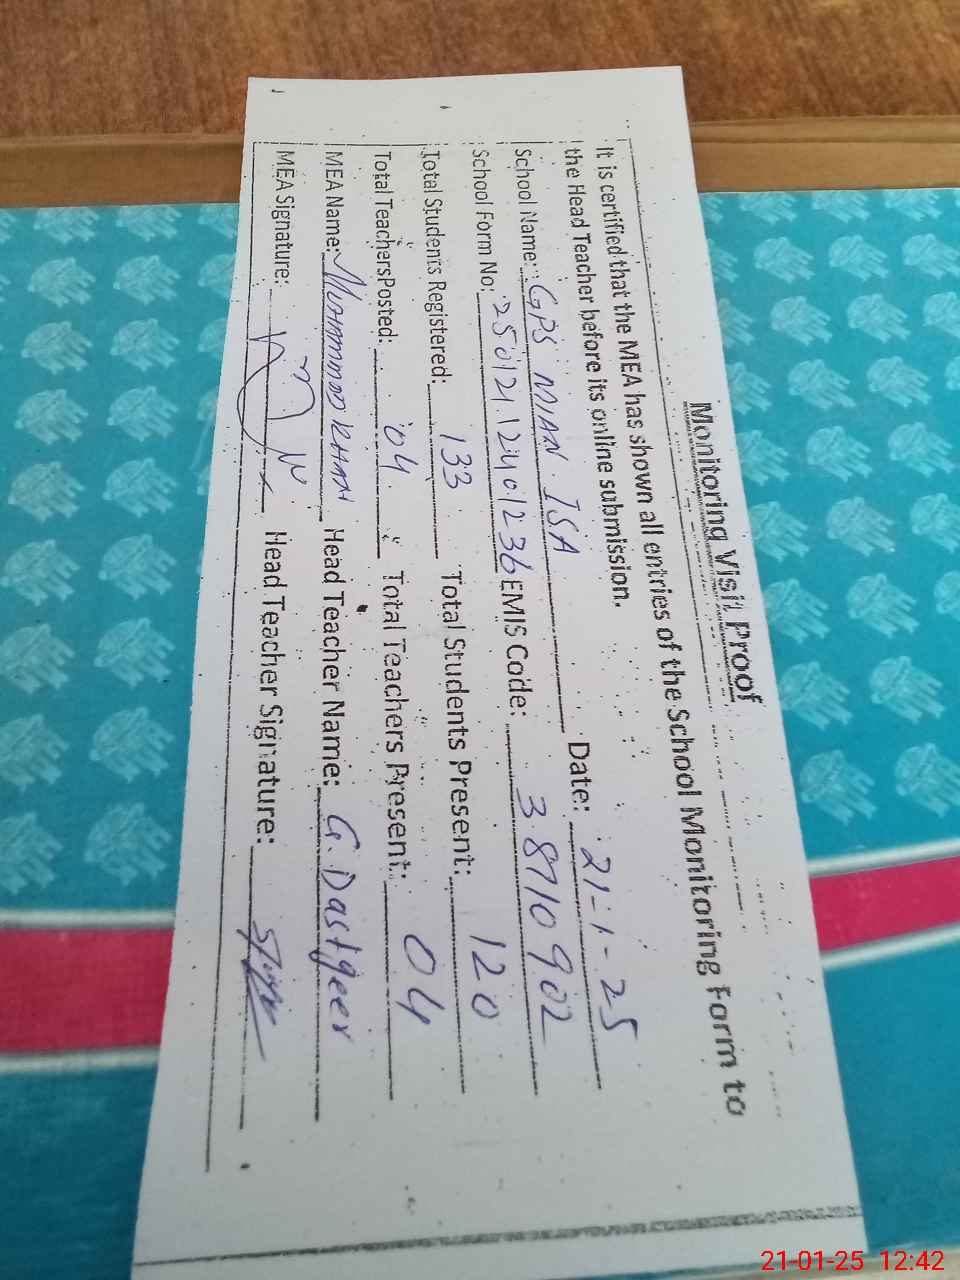 Monitoring Visit Proof
It is certified that the MEA has shown all entries of the School Monitoring Form to
the Head Teacher before its online submission.
School Name: GPS MIAN ISA Date: 21-1-25
School Form No: 25012112401236 EMIS Code: 38710902
Total Students Registered: 133 Total Students Present: 120
Total Teachers Posted: 04 Total Teachers Present: 04
MEA Name: MUHAMMAD KHAN Head Teacher Name: G. Dastgeer
MEA Signature: Head Teacher Signature:
21-01-25 12:42